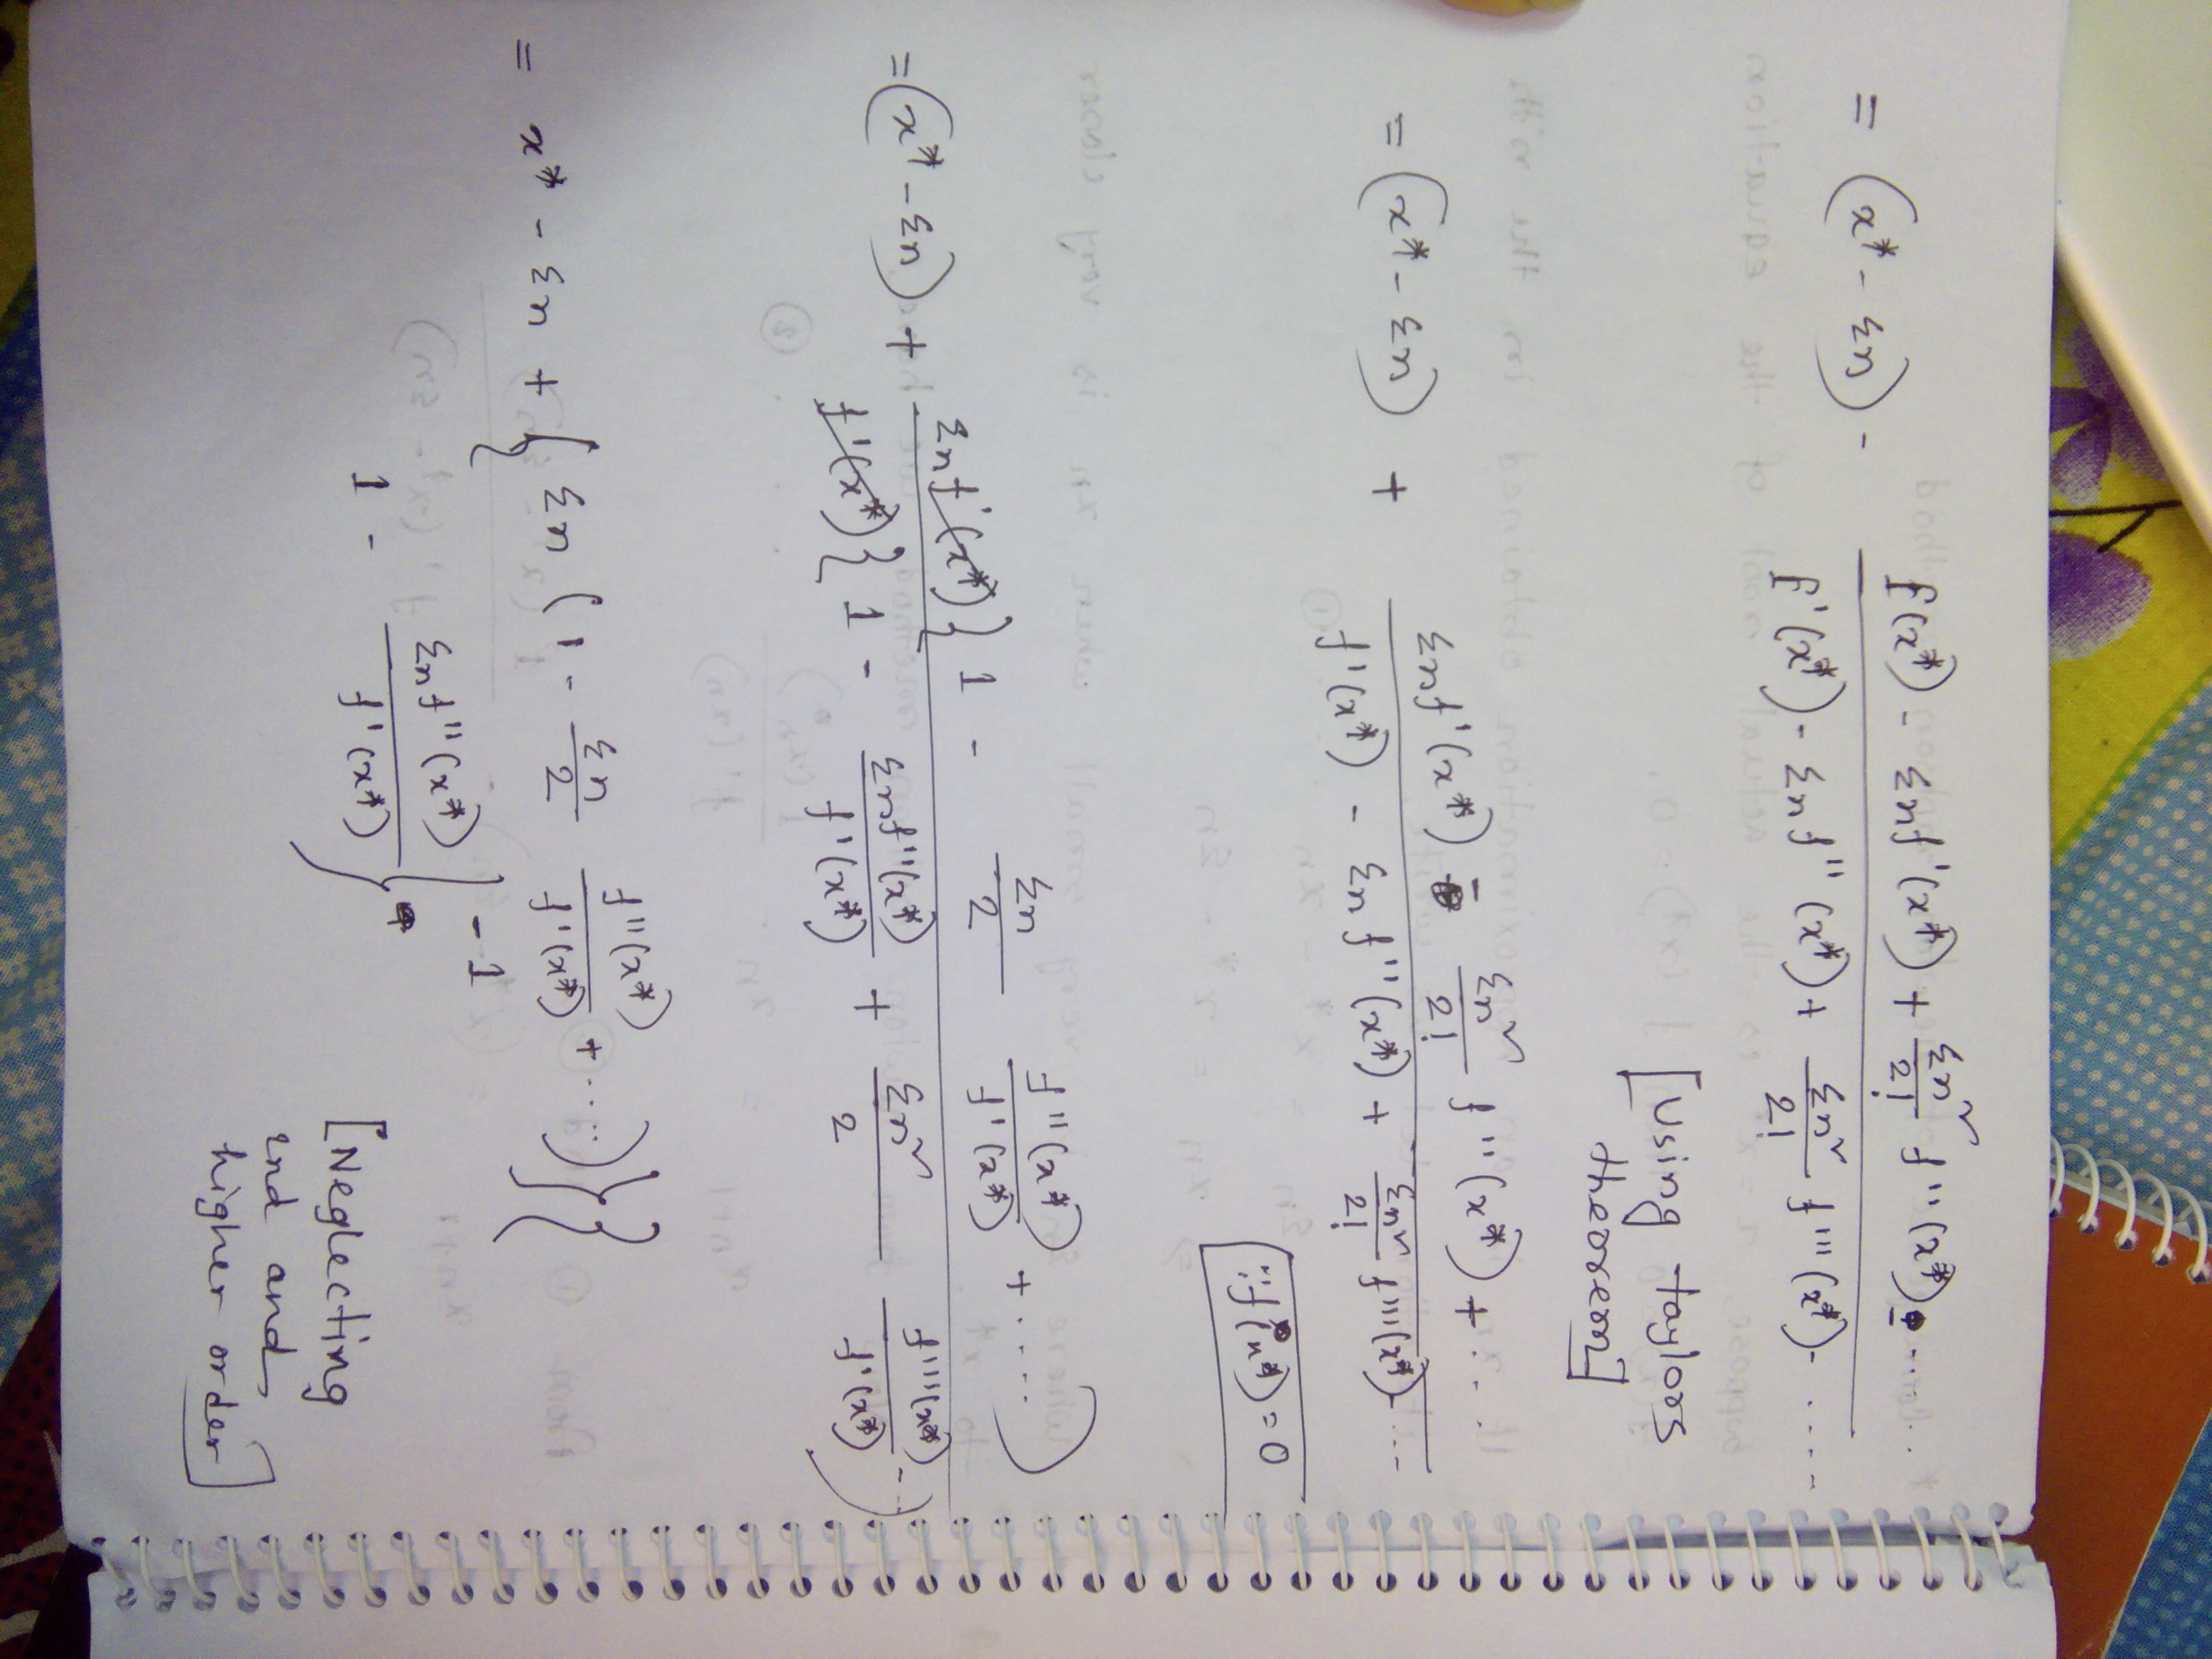 = (x* - εn) - f(x*) - εn f'(x*) + εn²/2! f''(x*) - .....
f'(x*) - εn f''(x*) + εn²/2! f'''(x*) - .....
[Using taylors
theorem]
= (x* - εn) + εn f'(x*) - εn²/2! f''(x*) + ....
f'(x*) - εn f''(x*) + εn²/2! f'''(x*) - ...
∵ f(x*) = 0
= (x* - εn) + εn f'(x*) { 1 - εn/2 f''(x*)/f'(x*) + .... )
f'(x*) { 1 - εn f''(x*)/f'(x*) + εn²/2 f'''(x*)/f'(x*) - ...)
= x* - εn + { εn ( 1 - εn/2 f''(x*)/f'(x*) + ... ) }
{ 1 - εn f''(x*)/f'(x*) }-1
[Neglecting
2nd and
higher order]